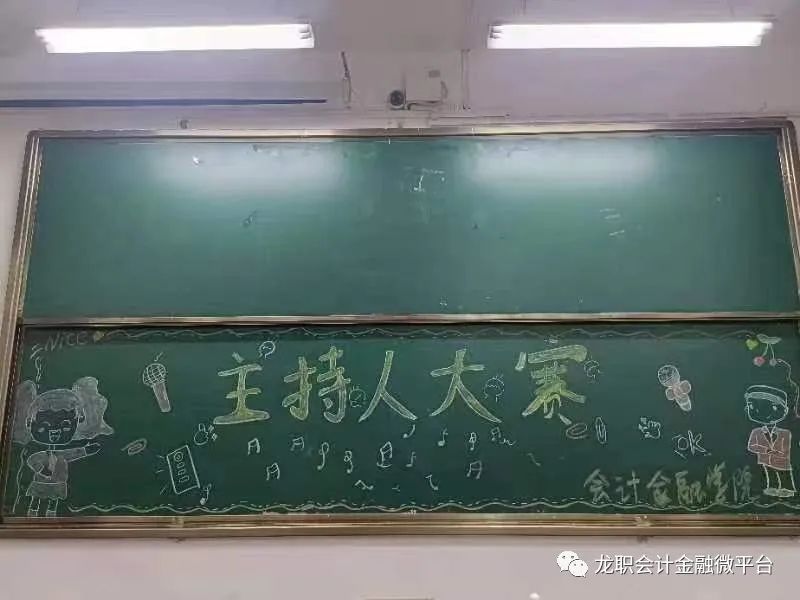 NICE
主持人大赛
OK
会计金融学院
龙职会计金融微平台